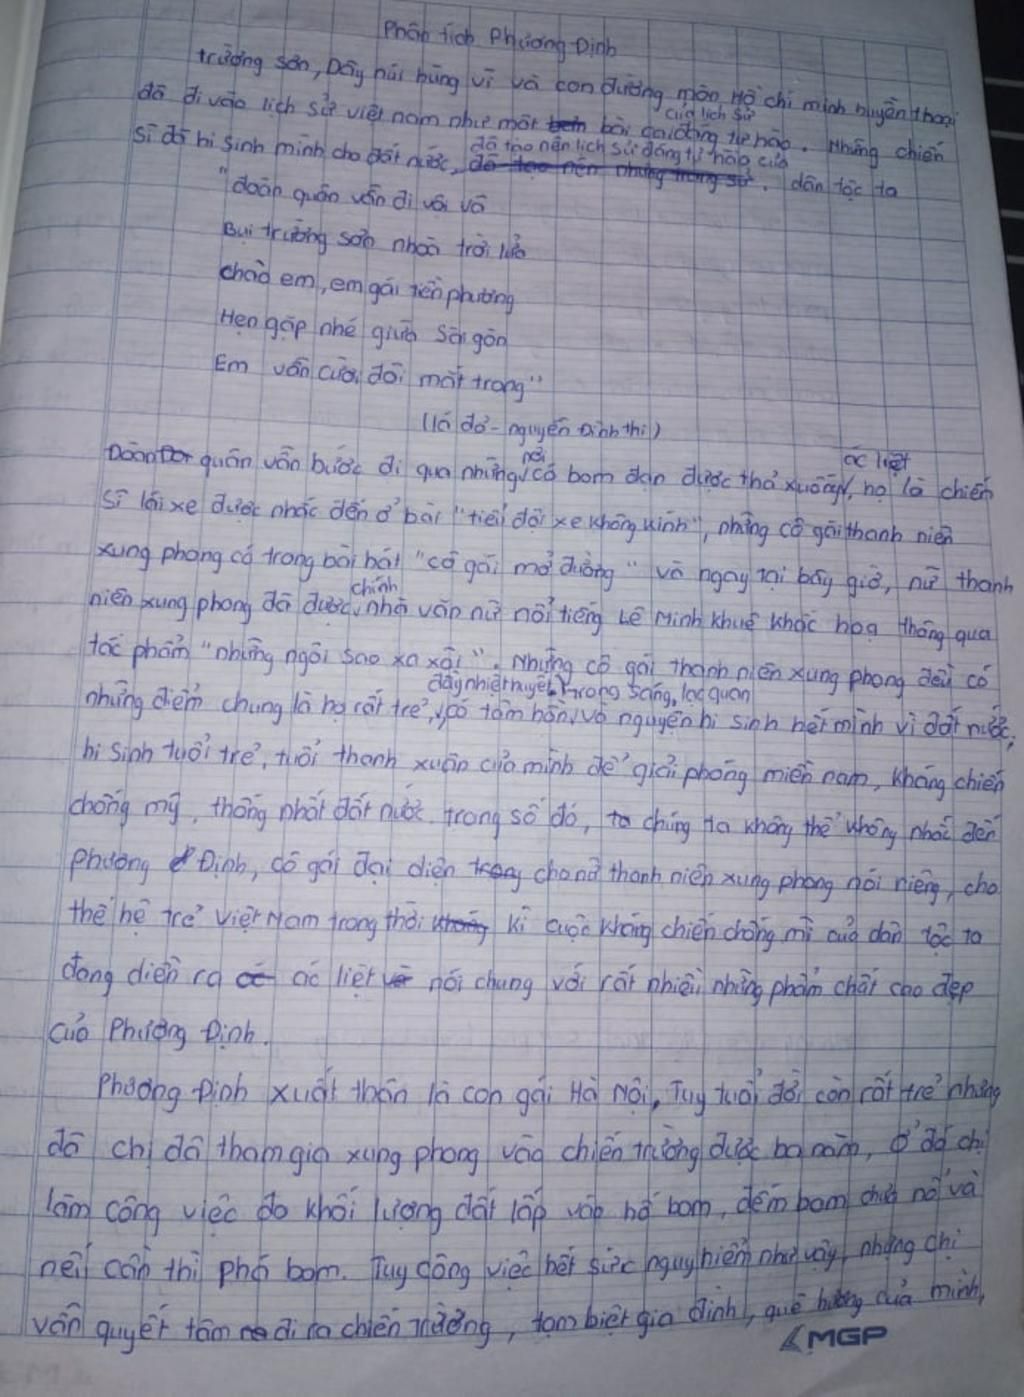 Phân tích Phương Định
trường sơn, Dãy núi hùng vĩ và con đường mòn Hồ chí minh huyền thoại
đã đi vào lịch sử việt nam như một bài ca của lịch sử đáng tự hào. Những chiến
sĩ đã hi sinh mình cho đất nước, đã tạo nên lịch sử đáng tự hào của dân tộc ta
"đoàn quân vẫn đi vội vã
Bụi trường sơn nhoà trời lửa
chào em, em gái tiền phương
Hẹn gặp nhé giữa Sài gòn
Em vẫn cười, đôi mắt trong"
(lá đỏ - nguyễn Đình thi)
Đoàn quân vẫn bước đi qua những nơi có bom đạn được thả xuống ác liệt, họ là chiến
sĩ lái xe được nhắc đến ở bài "tiểu đội xe không kính", những cô gái thanh niên
xung phong có trong bài hát "cô gái mở đường" và ngay tại bây giờ, nữ thanh
niên xung phong đã được chính nhà văn nữ nổi tiếng Lê Minh khuê khắc hoạ thông qua
tác phẩm "những ngôi sao xa xôi". Những cô gái thanh niên xung phong đều có
những điểm chung là họ rất trẻ, đầy nhiệt huyết, có tâm hồn trong sáng, lạc quan và nguyện hi sinh hết mình vì đất nước,
hi sinh tuổi trẻ, tuổi thanh xuân của mình để giải phóng miền nam, kháng chiến
chống mỹ, thống nhất đất nước. trong số đó, chúng ta không thể không nhắc đến
Phương Định, cô gái đại diện cho nữ thanh niên xung phong nói riêng, cho
thế hệ trẻ Việt Nam trong thời kì cuộc kháng chiến chống mĩ của dân tộc ta
đang diễn ra ác liệt nói chung với rất nhiều những phẩm chất cao đẹp
của Phương Định.
Phương Định xuất thân là con gái Hà Nội, Tuy tuổi đời còn rất trẻ nhưng
đã chị đã tham gia xung phong vào chiến trường được ba năm, ở đó chị
làm công việc đo khối lượng đất lấp vào hố bom, đếm bom chưa nổ và
nếu cần thì phá bom. Tuy công việc hết sức nguy hiểm như vậy, nhưng chị
vẫn quyết tâm đi ra chiến trường, tạm biệt gia đình, quê hương của mình,
MGP